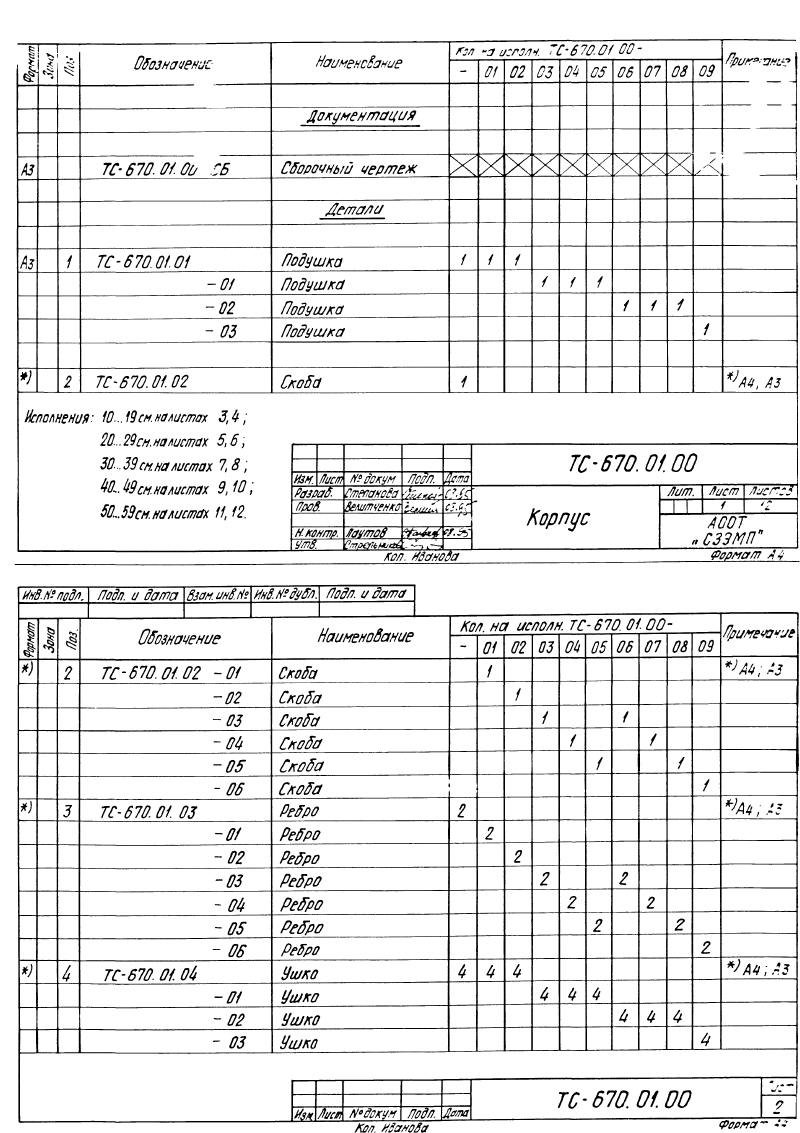 Формат Зона Поз. Обозначение Наименование Кол. на исполн. ТС-670.01.00- Примечание
- 01 02 03 04 05 06 07 08 09
Документация
А3 ТС-670.01.00 СБ Сборочный чертеж
Детали
А3 1 ТС-670.01.01 Подушка 1 1 1
-01 Подушка 1 1 1
-02 Подушка 1 1 1
-03 Подушка 1
*) 2 ТС-670.01.02 Скоба 1 *) А4, А3
Исполнения: 10...19 см. на листах 3,4;
20...29 см. на листах 5,6;
30...39 см. на листах 7,8;
40...49 см. на листах 9,10;
50...59 см. на листах 11,12.
ТС-670.01.00
Изм. Лист № докум Подп. Дата
Разраб. Степанова
Пров. Велитченко
Н.контр. Лаутов
Утв.
Корпус
Лит. Лист Листов
1 12
АООТ
„СЗЭМП"
Кол. Иванова Формат А4
Инв. № подл. Подп. и дата Взам. инв № Инв. № дубл. Подп. и дата
Формат Зона Поз. Обозначение Наименование Кол. на исполн. ТС-670.01.00- Примечание
- 01 02 03 04 05 06 07 08 09
*) 2 ТС-670.01.02 -01 Скоба 1 *) А4; А3
-02 Скоба 1
-03 Скоба 1 1
-04 Скоба 1 1
-05 Скоба 1 1
-06 Скоба 1
*) 3 ТС-670.01.03 Ребро 2 *) А4; А3
-01 Ребро 2
-02 Ребро 2
-03 Ребро 2 2
-04 Ребро 2 2
-05 Ребро 2 2
-06 Ребро 2
*) 4 ТС-670.01.04 Ушко 4 4 4 *) А4; А3
-01 Ушко 4 4 4
-02 Ушко 4 4 4
-03 Ушко 4
Изм Лист № докум Подп. Дата ТС-670.01.00 Лист
2
Кол. Иванова Формат